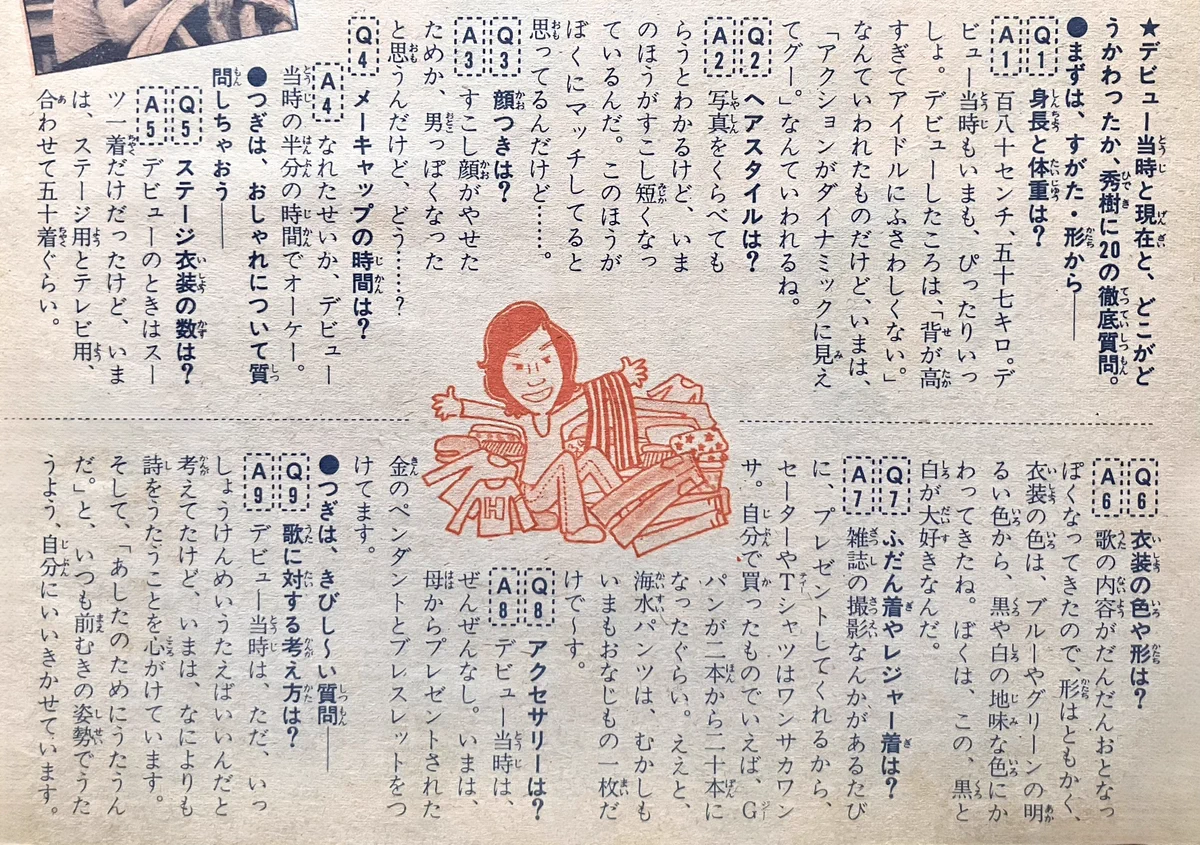 ★デビュー当時と現在と、どこがど
うかわったか、秀樹に20の徹底質問。
●まずは、すがた・形から——
Q1 身長と体重は?
A1 百八十センチ、五十七キロ。デ
ビュー当時もいまも、ぴったりいっ
しょ。デビューしたころは、「背が高
すぎてアイドルにふさわしくない。」
なんていわれたものだけど、いまは、
「アクションがダイナミックに見え
てグー。」なんていわれるね。
Q2 ヘアスタイルは?
A2 写真をくらべても
らうとわかるけど、いま
のほうがすこし短くなっ
ているんだ。このほうが
ぼくにマッチしてると
思ってるんだけど……。
Q3 顔つきは?
A3 すこし顔がやせた
ためか、男っぽくなった
と思うんだけど、どう……?
Q4 メーキャップの時間は?
A4 なれたせいか、デビュー
当時の半分の時間でオーケー。
●つぎは、おしゃれについて質
問しちゃおう——
Q5 ステージ衣装の数は?
A5 デビューのときはスー
ツ一着だけだったけど、いま
は、ステージ用とテレビ用、
合わせて五十着ぐらい。
Q6 衣装の色や形は?
A6 歌の内容がだんだんおとなっ
ぽくなってきたので、形はともかく、
衣装の色は、ブルーやグリーンの明
るい色から、黒や白の地味な色にか
わってきたね。ぼくは、この、黒と
白が大好きなんだ。
Q7 ふだん着やレジャー着は?
A7 雑誌の撮影なんかがあるたび
に、プレゼントしてくれるから、
セーターやTシャツはワンサカワン
サ。自分で買ったものでいえば、G
パンが二本から二十本に
なったぐらい。ええと、
海水パンツは、むかしも
いまもおなじもの一枚だ
けで〜す。
Q8 アクセサリーは?
A8 デビュー当時は、
ぜんぜんなし。いまは、
母からプレゼントされた
金のペンダントとブレスレットをつ
けてます。
●つぎは、きびし〜い質問——
Q9 歌に対する考え方は?
A9 デビュー当時は、ただ、いっ
しょうけんめいうたえばいいんだと
考えてたけど、いまは、なによりも
詩をうたうことを心がけています。
そして、「あしたのためにうたうん
だ。」と、いつも前むきの姿勢でうた
うよう、自分にいいきかせています。
H